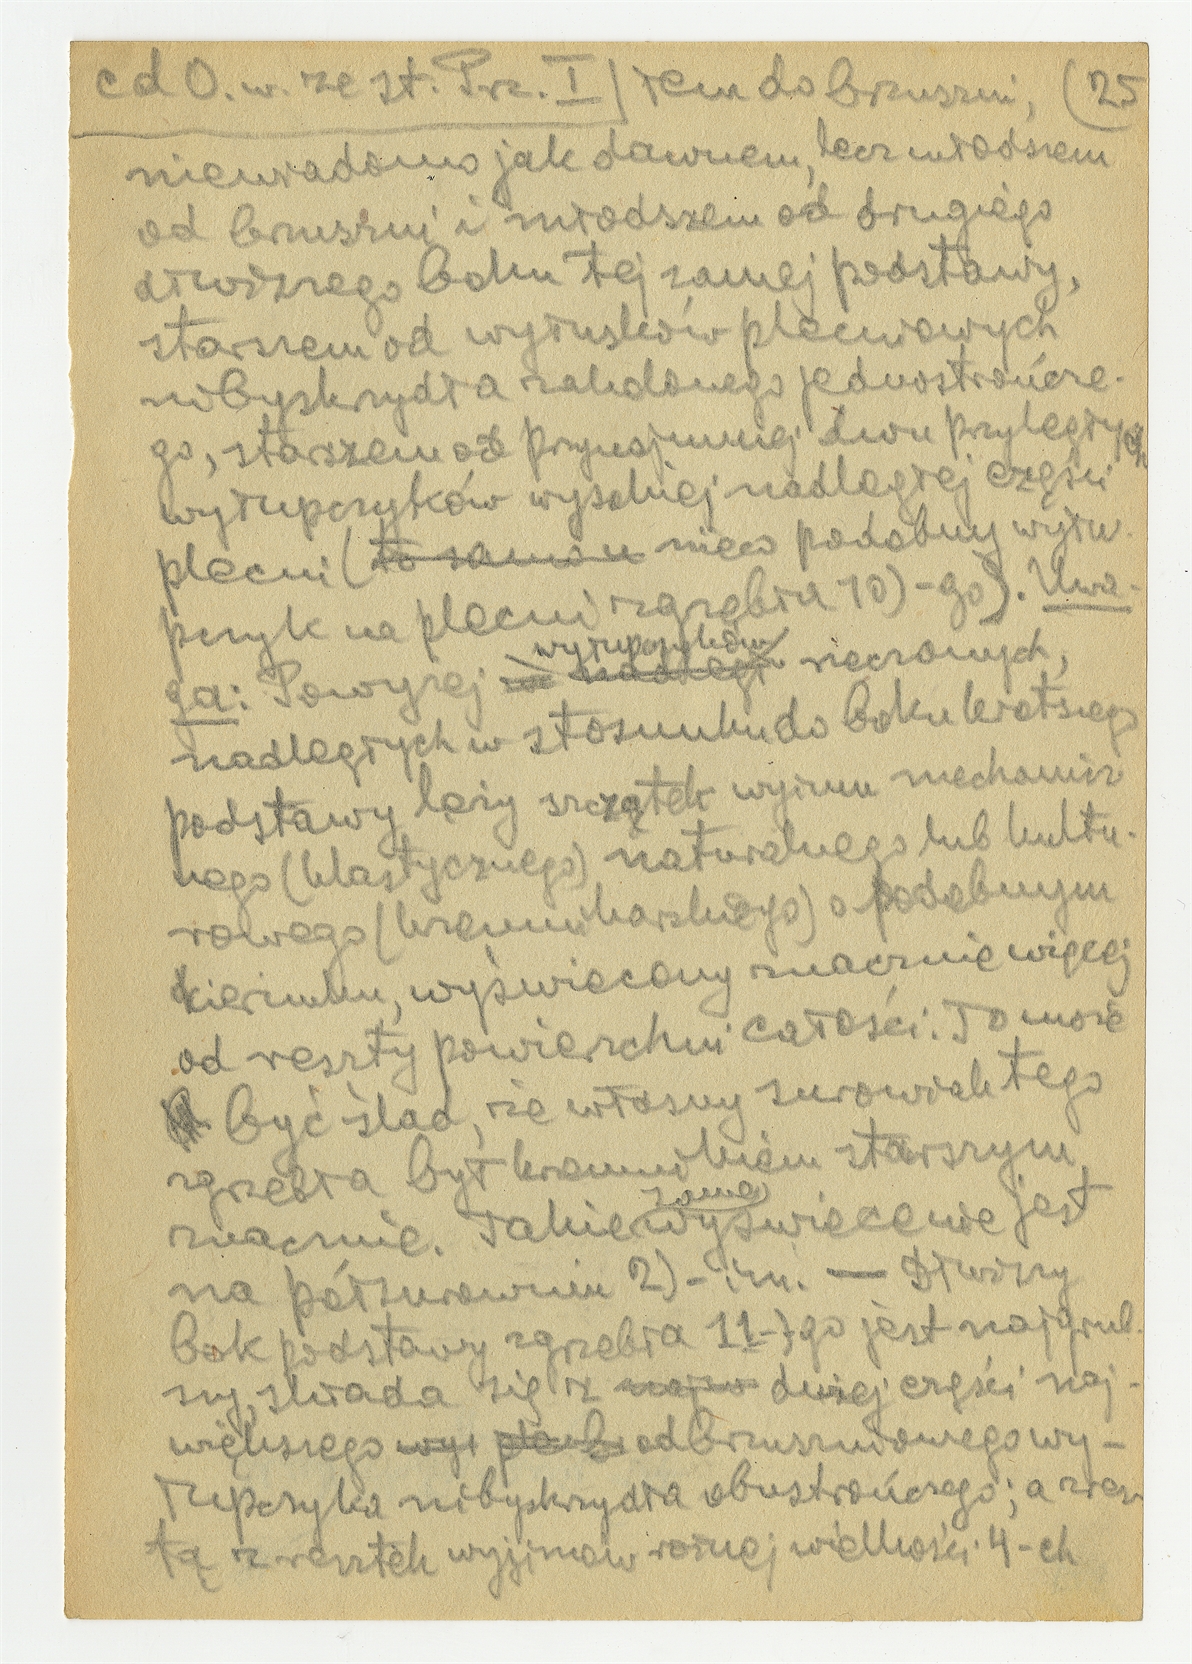 cd O. w. ze st. Prz. I) łem do brzuszni, (25
niewiadomo jak dawnem, lecz młodszem
od brzuszni i młodszem od drugiego
dłuższego boku tej samej podstawy,
starszem od wyłusków pleciowych
nibyskrzydła zakolonego jednostrończe-
go, starszem od przynajmniej dwu przyległych
wyłupczyków wysokiej nadległej części
plecni (to samo n nieco podobny wyłu-
pczyk na plecni zgrzebła 10)-go). Uwa-
ga: Powyżej wyłupczyków rzeczonych,
nadległych w stosunku do boku krótszego
podstawy leży szczątek wyimu mechanicz
nego (klastycznego) naturalnego lub kultu-
rowego (krzemieniarskiego) o podobnym
kierunku, wyświecony znacznie więcej
od reszty powierzchni całości. To może
być ślad, że własny surowiak tego
zgrzebła był krzemieniem starszym
znacznie. Takie samo wyświecenie jest
na półsurowniu 2)-im. — Dłuższy
bok podstawy zgrzebła 11-)go jest najgrub-
szy, składa się z dużej części naj-
większego odbrzuszniowego wy-
łupczyka nibyskrzydła obustrończego; a resz
tą z resztek wyjimów różnej wielkości 4-ch